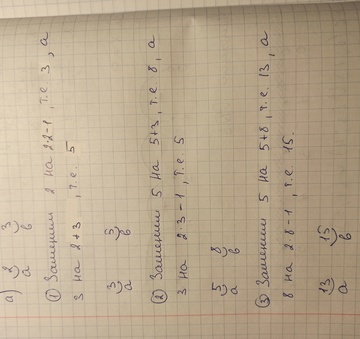 а) 2 3
а в
① Заменим 2 на 2·2-1, т.е. 3, а
3 на 2+3, т.е. 5
3 5
а в
② Заменим 5 на 5+3, т.е. 8, а
3 на 2·3-1, т.е. 5
5 8
а в
③ Заменим 5 на 5+8, т.е. 13, а
8 на 2·8-1, т.е. 15.
13 15
а в